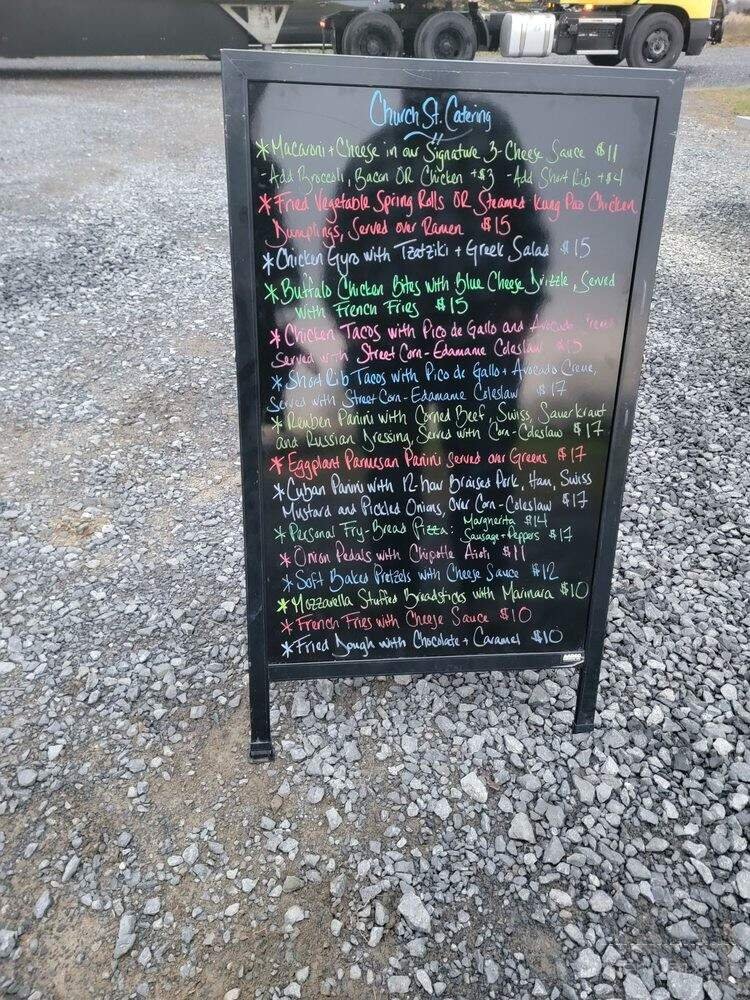 Church St. Catering
* Macaroni + Cheese in our Signature 3-Cheese Sauce $11
- Add Broccoli, Bacon OR Chicken +$3 - Add Short Rib +$4
* Fried Vegetable Spring Rolls OR Steamed Kung Pao Chicken
Dumplings, Served over Ramen $15
* Chicken Gyro with Tzatziki + Greek Salad $15
* Buffalo Chicken Bites with Blue Cheese Drizzle, Served
with French Fries $15
* Chicken Tacos with Pico de Gallo and Avocado Creme
Served with Street Corn - Edamame Coleslaw $15
* Short Rib Tacos with Pico de Gallo + Avocado Creme,
Served with Street Corn - Edamame Coleslaw $17
* Reuben Panini with Corned Beef, Swiss, Sauerkraut
and Russian Dressing, Served with Corn - Coleslaw $17
* Eggplant Parmesan Panini Served over Greens $17
* Cuban Panini with 12-hour Braised Pork, Ham, Swiss
Mustard and Pickled Onions, Over Corn - Coleslaw $17
* Personal Fry-Bread Pizza: Margherita $14
Sausage + Peppers $17
* Onion Pedals with Chipotle Aioli $11
* Soft Baked Pretzels with Cheese Sauce $12
* Mozzarella Stuffed Breadsticks with Marinara $10
* French Fries with Cheese Sauce $10
* Fried Dough with Chocolate + Caramel $10